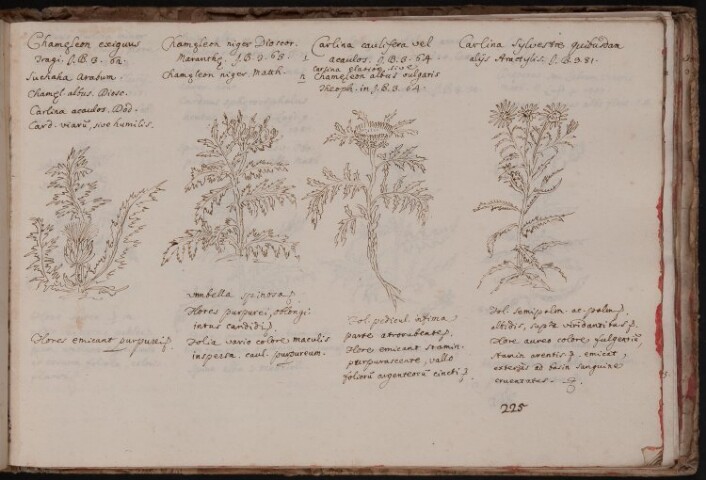 Chamæleon exiguus
Tragi. J.B. 3. 62.
Suchaha Arabum.
Chamæl. albus. Diosc.
Carlina acaulos. Dod.
Card. viarū, sive humilis.
Flores emicant purpurei
Chamæleon niger Dioscor.
J.B. 3. 63.
Chamæleon niger. Matth.
umbella spinosa
Flores purpurei, oblongi
intus candidi
Folia vario colore, maculis
inspersa. caul. purpureum.
Carlina caulifera vel
acaulos. J.B. 3. 64
Carlina elatior, sive
Chamæleon albus vulgaris
Theoph. in J.B. 3. 64.
Fol. pedicul. intima
parte atrorubente
Flore emicant stamin.
purpurascente, vallo
foliorū argenteorū cincti
Carlina Sylvestris quibusdam
alijs Atractylis. J.B. 3. 81.
albidis, supra viridantibus
Flore aureo colore fulgentiū
emicat,
ad basin sanguine
cruentatas.
225